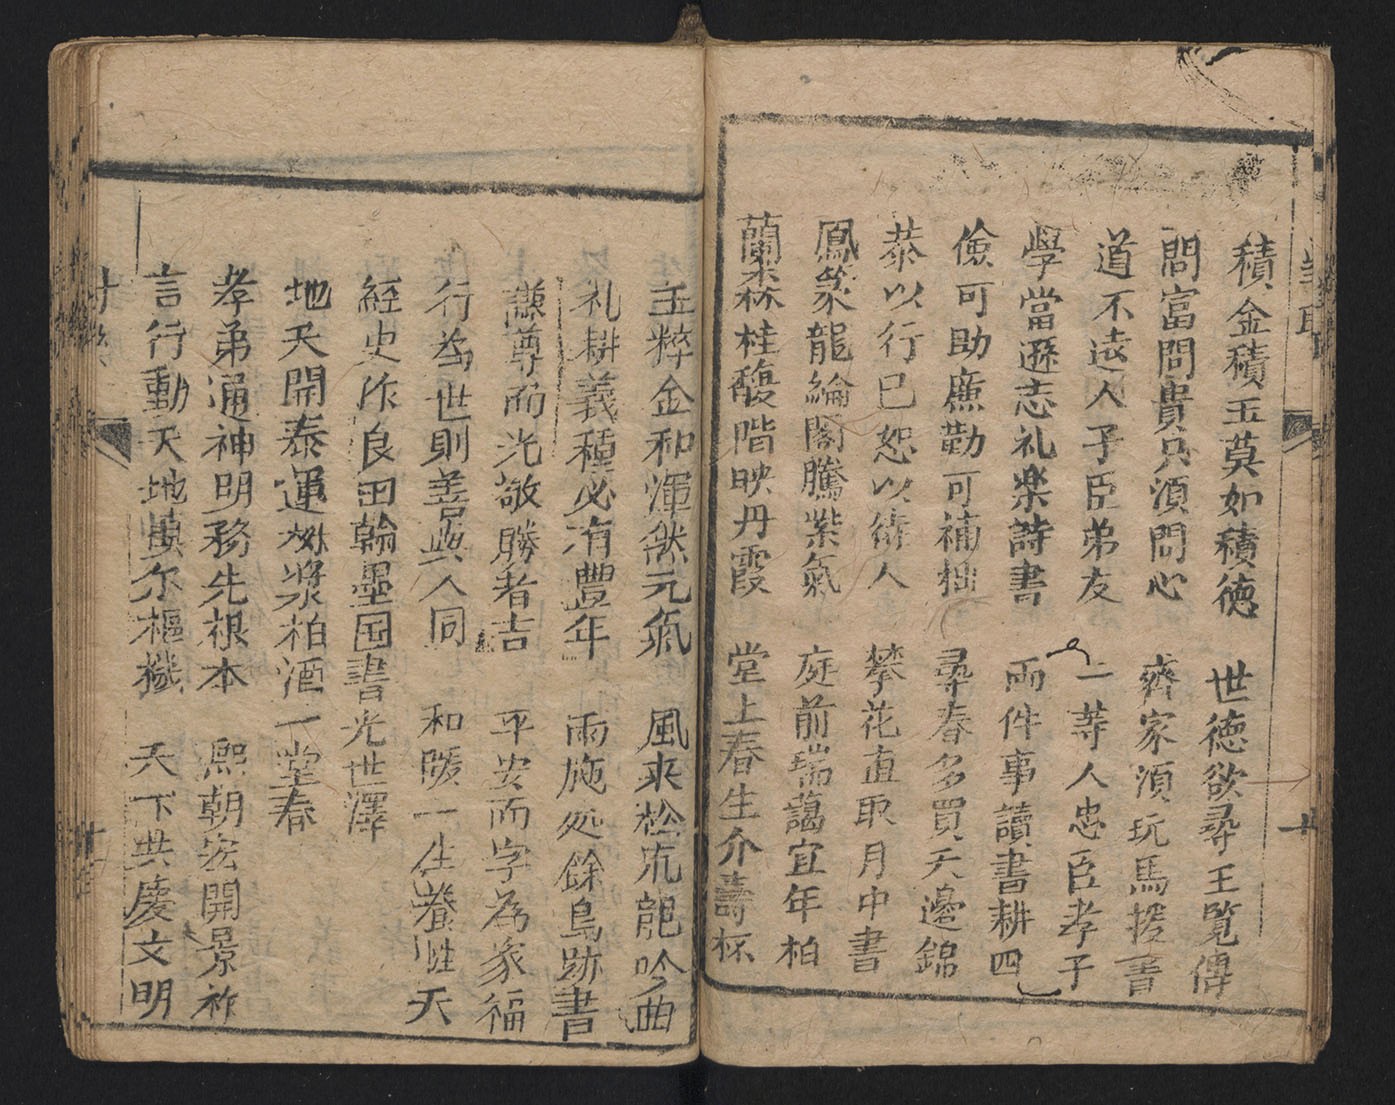 積金積玉莫如積德　世德欲尋王覧傳
問富問貴只須問心　齊家須玩馬援書
道不遠人子臣弟友　一等人忠臣孝子
學當遜志礼楽詩書　両件事讀書耕田
儉可助廉勤可補拙　尋春多買天邊錦
恭以行己恕以待人　攀花直取月中書
鳳篆龍綸閣騰紫氣　庭前瑞藹宜年柏
蘭森桂馥階映丹霞　堂上春生介壽杯
玉粹金和渾然元氣　風來松下龍吟曲
礼耕義種必有豐年　雨施処餘鳥跡書
謙尊而光敬勝者吉　平安而字為家福
行為世則善與人同　和暖一生養性天
經史作良田翰墨図書光世澤
地天開泰運椒漿柏酒一堂春
孝弟通神明務先根本　熙朝宏開景祚
言行動天地慎尔樞機　天下共慶文明